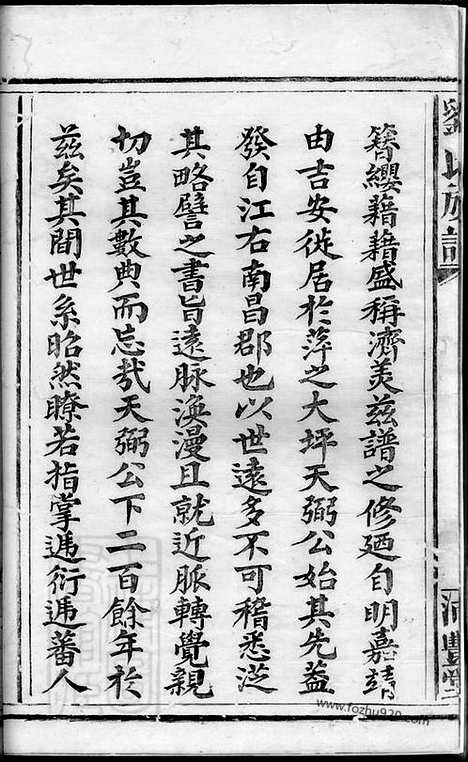 劉氏族譜
簮纓藉藉盛稱濟美兹譜之修廼自明嘉靖
由吉安徙居於萍之大坪天弼公始其先葢
發自江右南昌郡也以世遠多不可稽悉泛
其略譬之書旨遠脉渙漫且就近脈轉覺親
切豈其數典而忘㢤天弼公下二百餘年於
兹矣其間世系昭然瞭若指掌遞衍遞蕃人
www.fozhu920.com